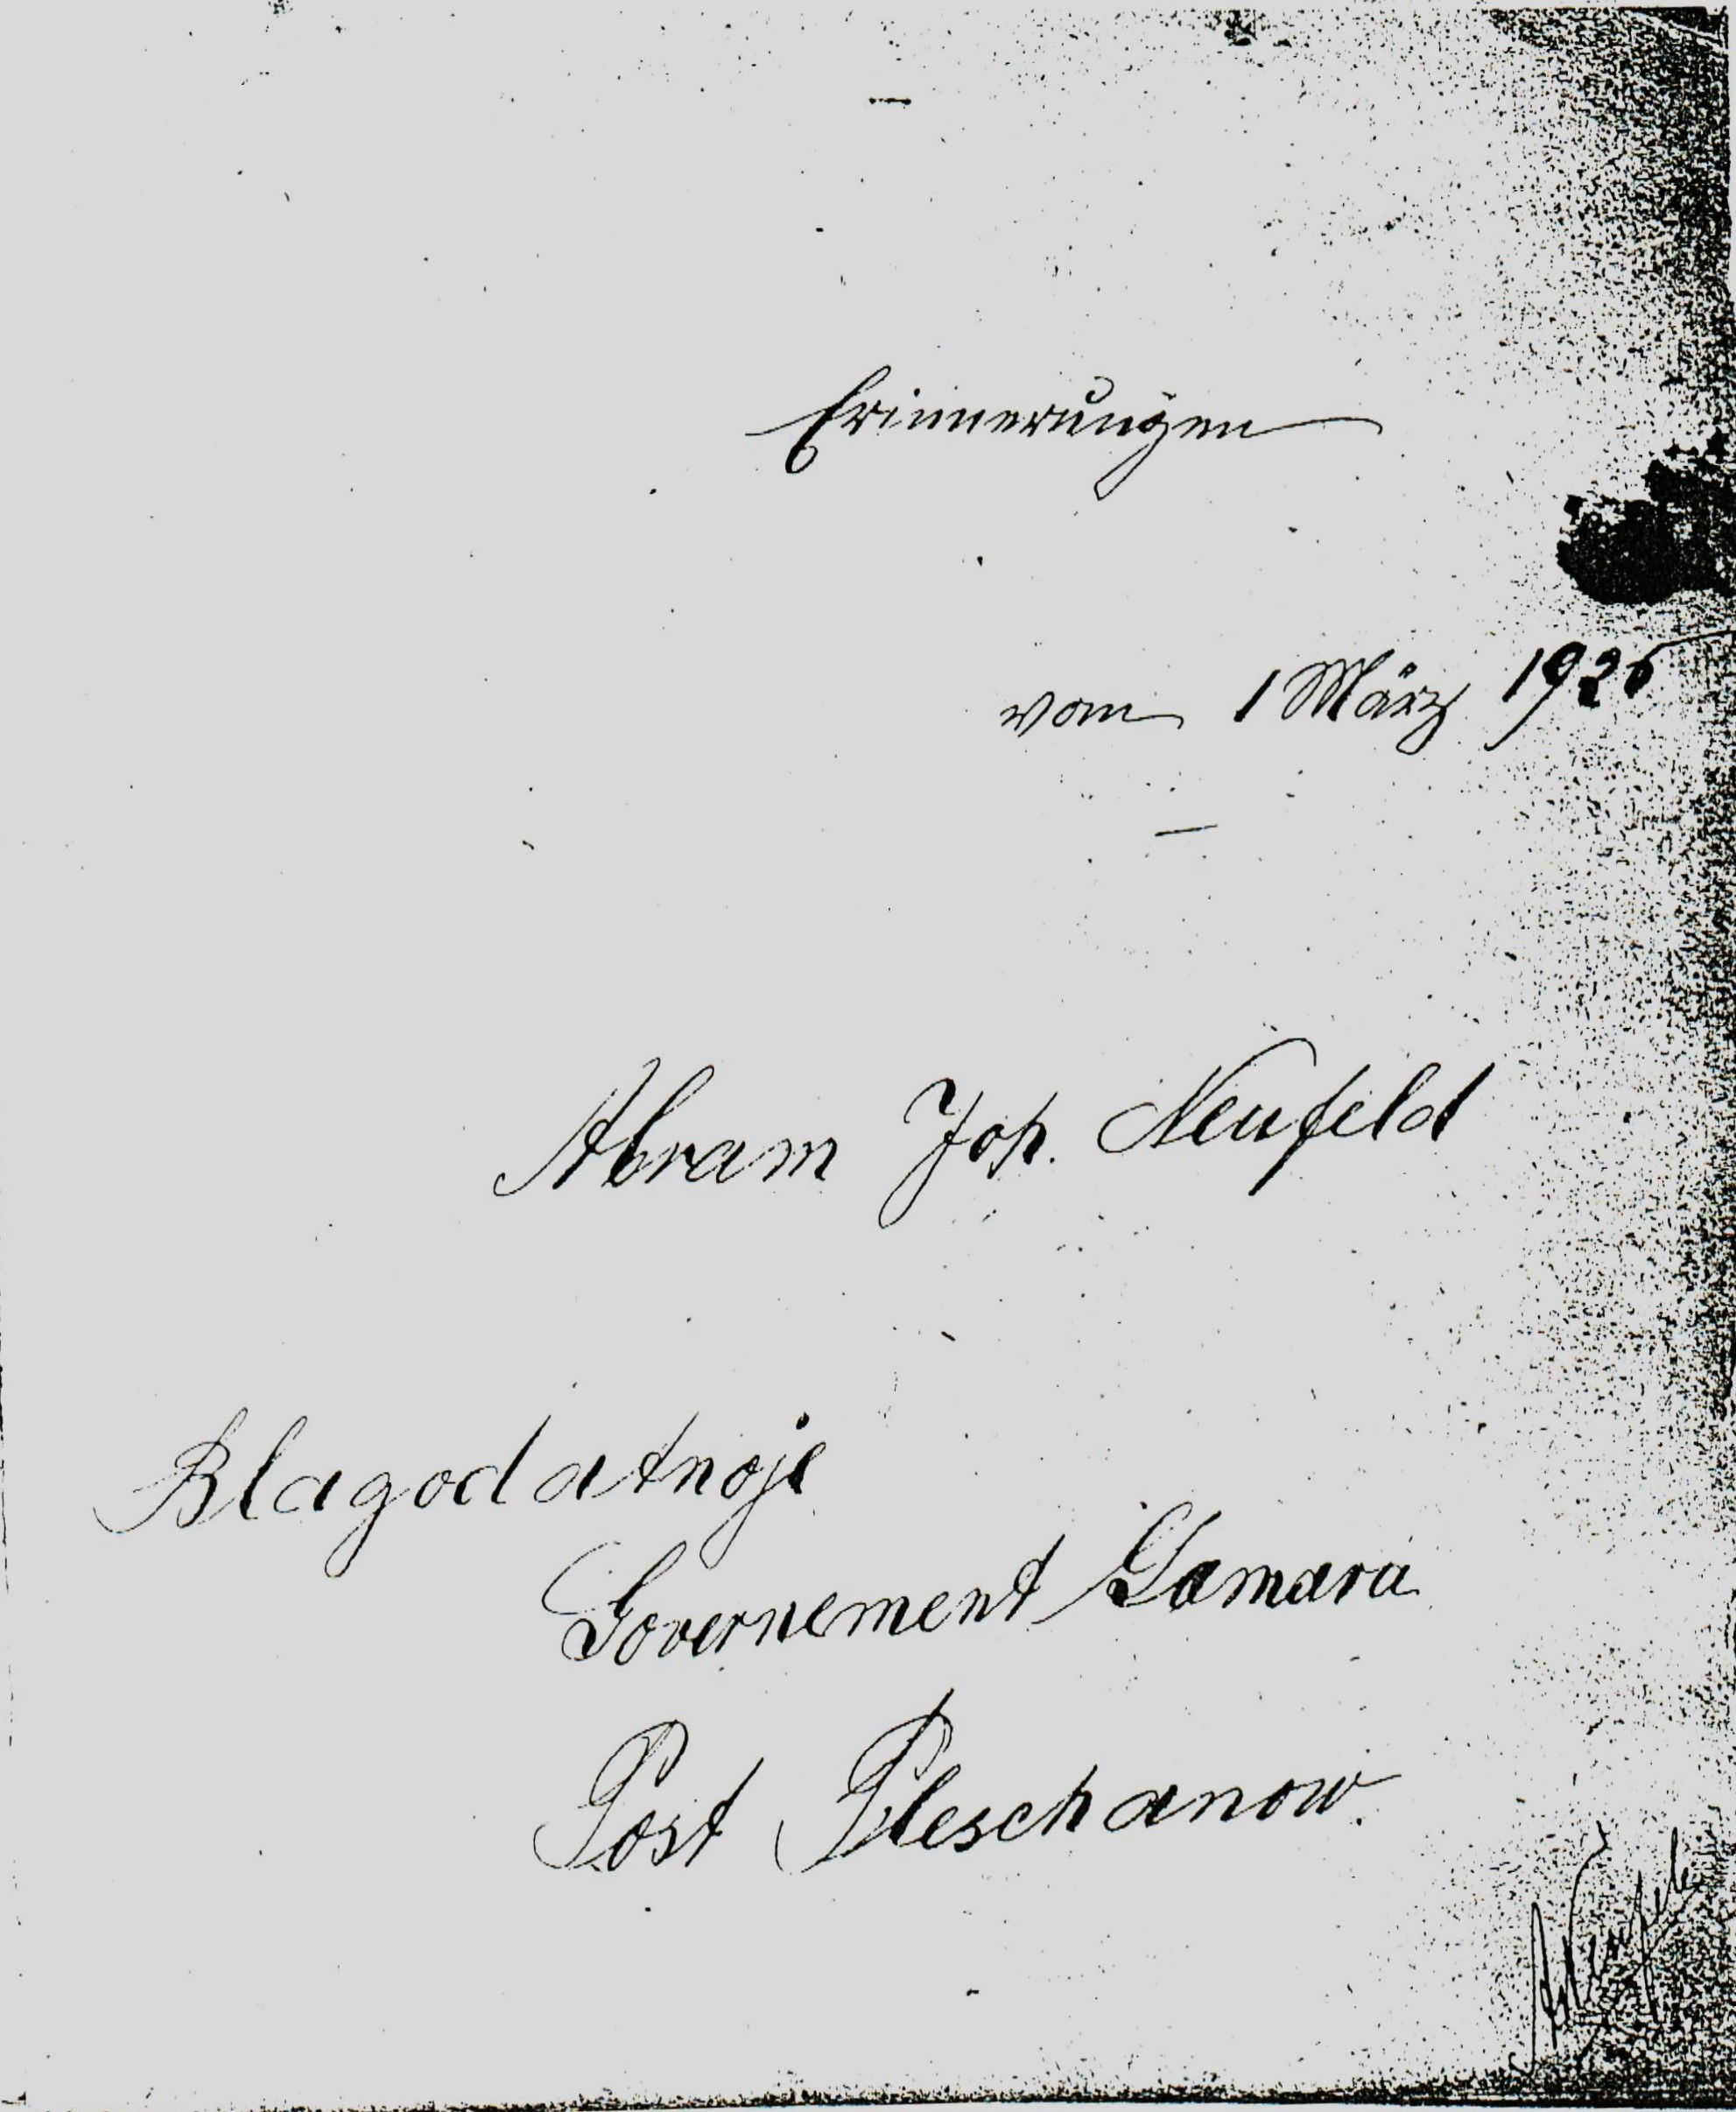 Erinnerungen
vom 1 März 1925
Abram Joh. Neufeld
Blagodatnoje
Governement Samara
Post Pleschanow.